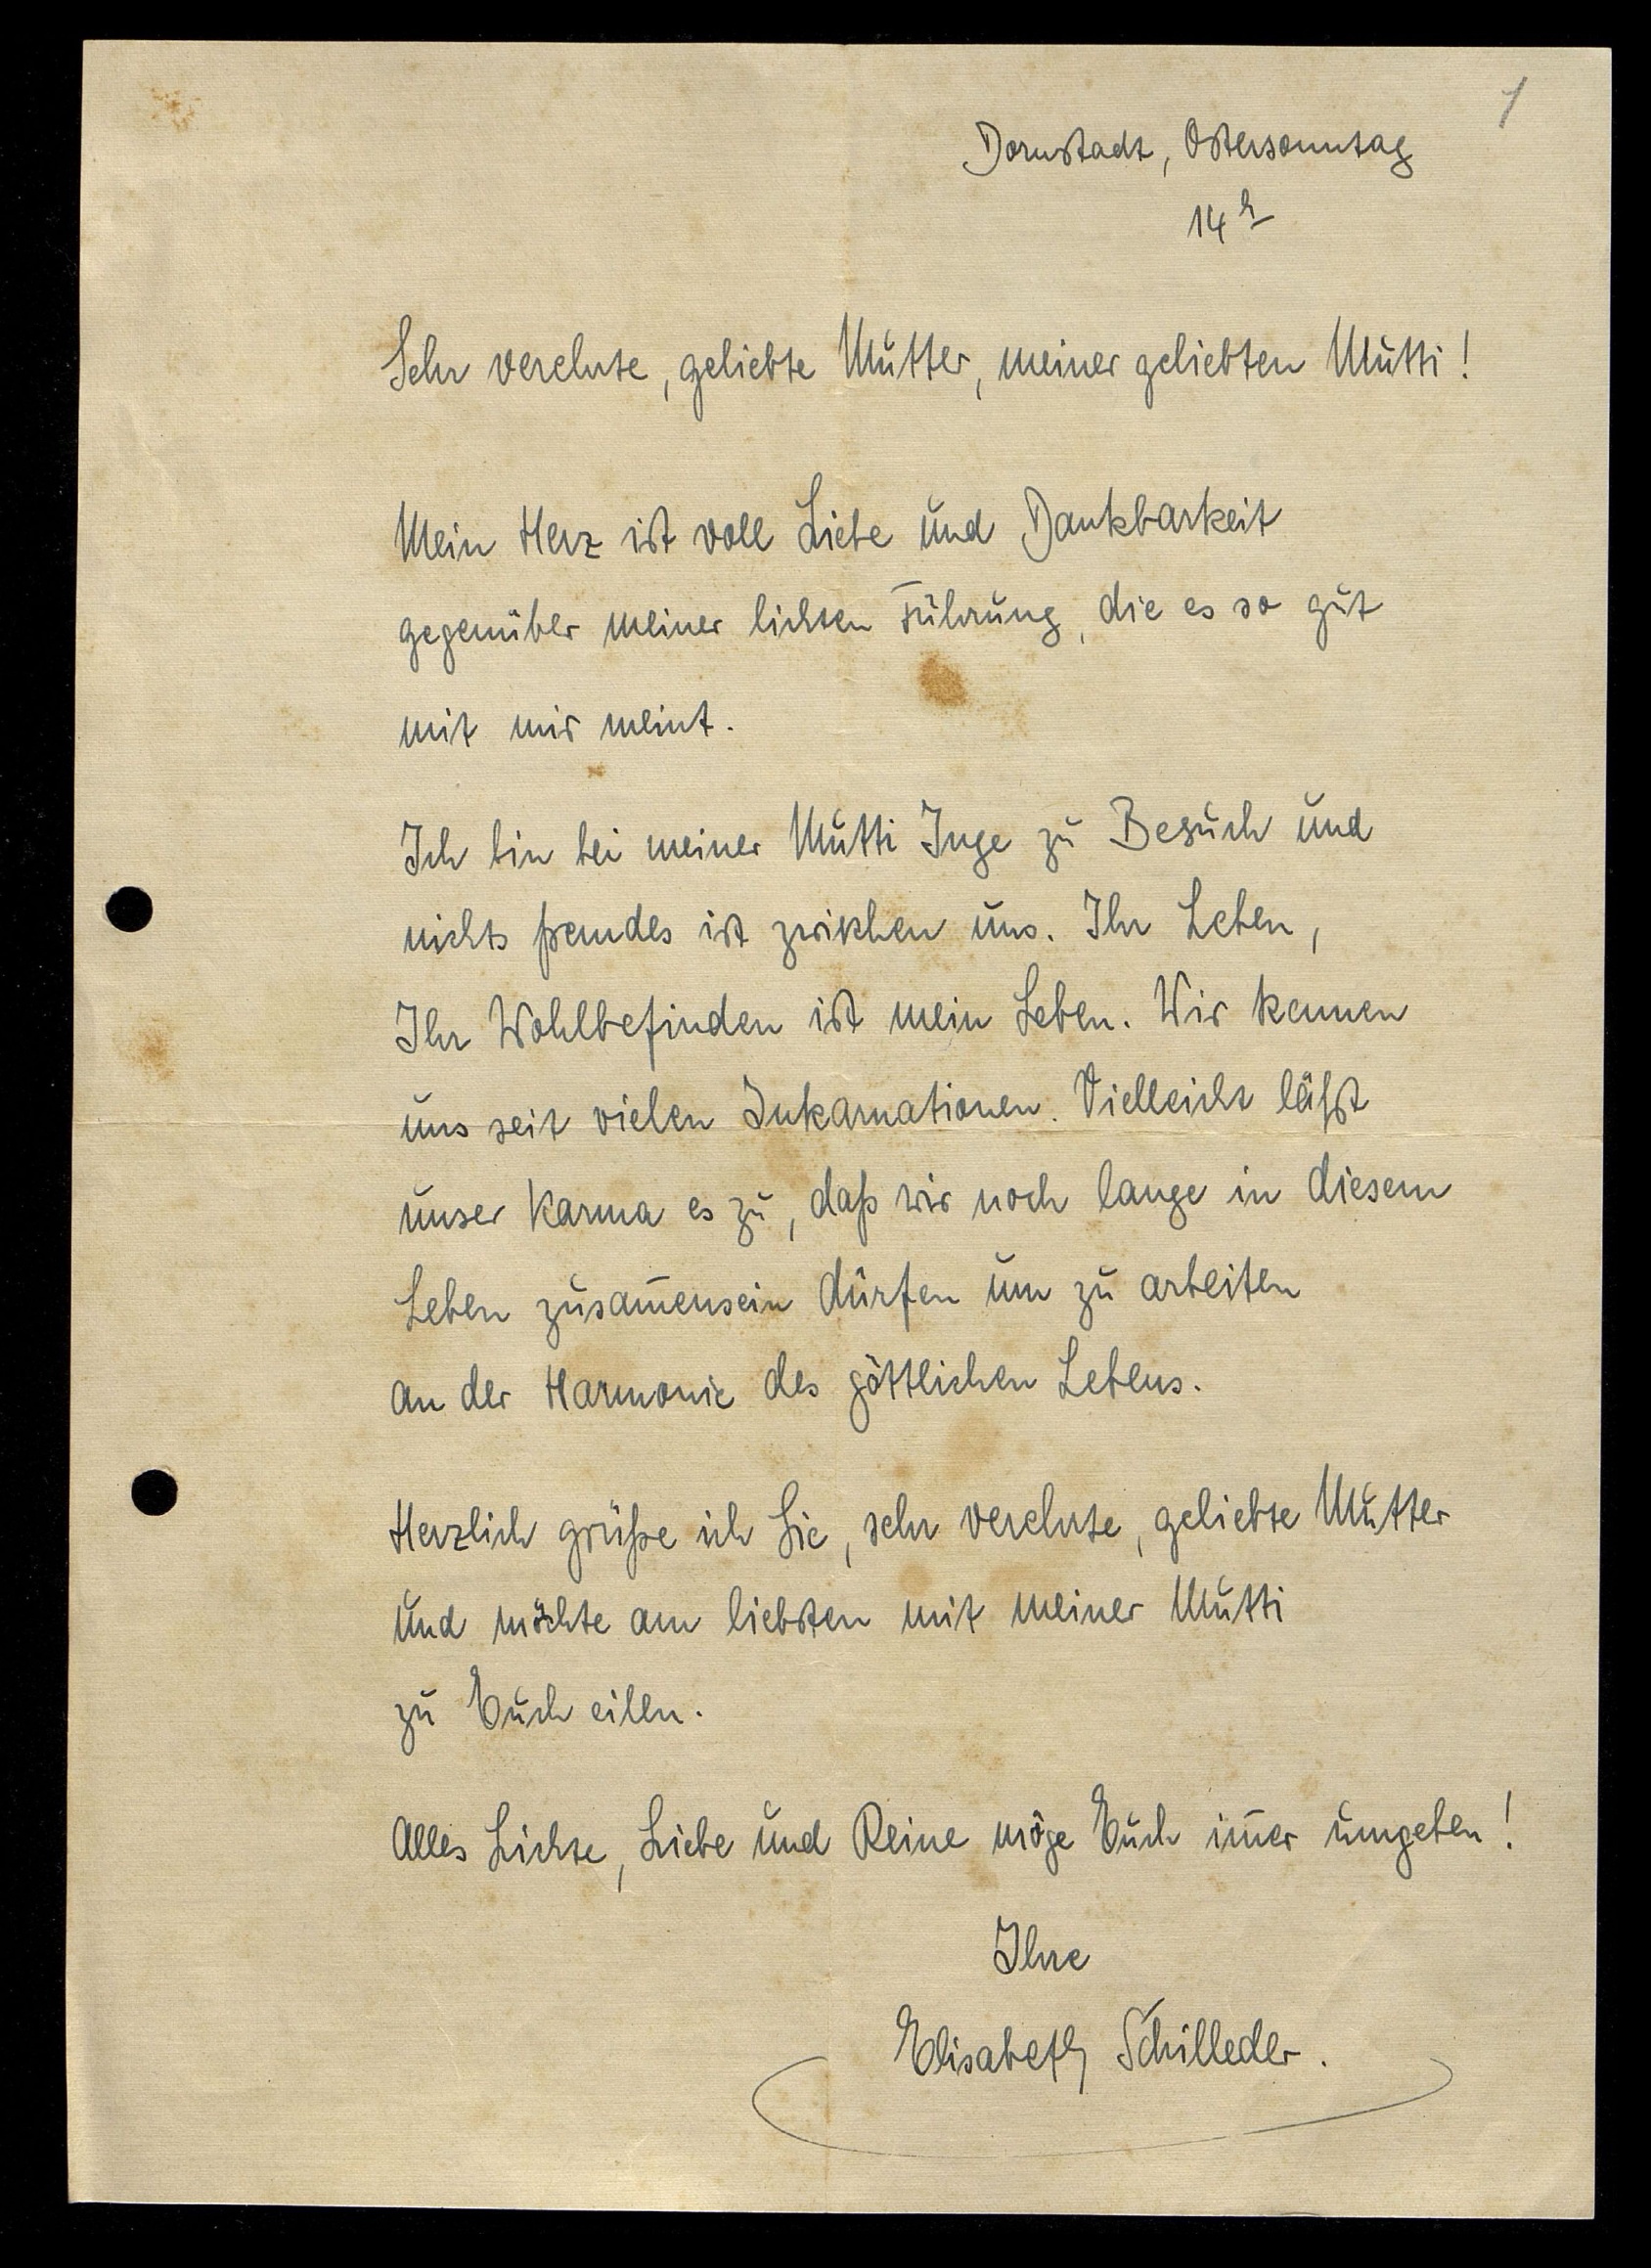 1
Dornstadt, Ostersonntag
14 h
Sehr verehrte, geliebte Mutter, meiner geliebten Mutti!
Mein Herz ist voll Liebe und Dankbarkeit
gegenüber meiner lichten Führung, die es so gut
mit mir meint.
Ich bin bei meiner Mutti Inge zu Besuch und
nichts fremdes ist zwischen uns. Ihr Leben,
Ihr Wohlbefinden ist mein Leben. Wir kennen
uns seit vielen Inkarnationen. Vielleicht läßt
unser Karma es zu, daß wir noch lange in diesem
Leben zusam̅ensein dürfen um zu arbeiten
an der Harmonie des göttlichen Lebens.
Herzlich grüße ich Sie, sehr verehrte, geliebte Mutter
und möchte am liebsten mit meiner Mutti
zu Euch eilen.
Alles Lichte, Liebe und Reine möge Euch im̅er umgeben!
Ihre
Elisabeth Schilleder.